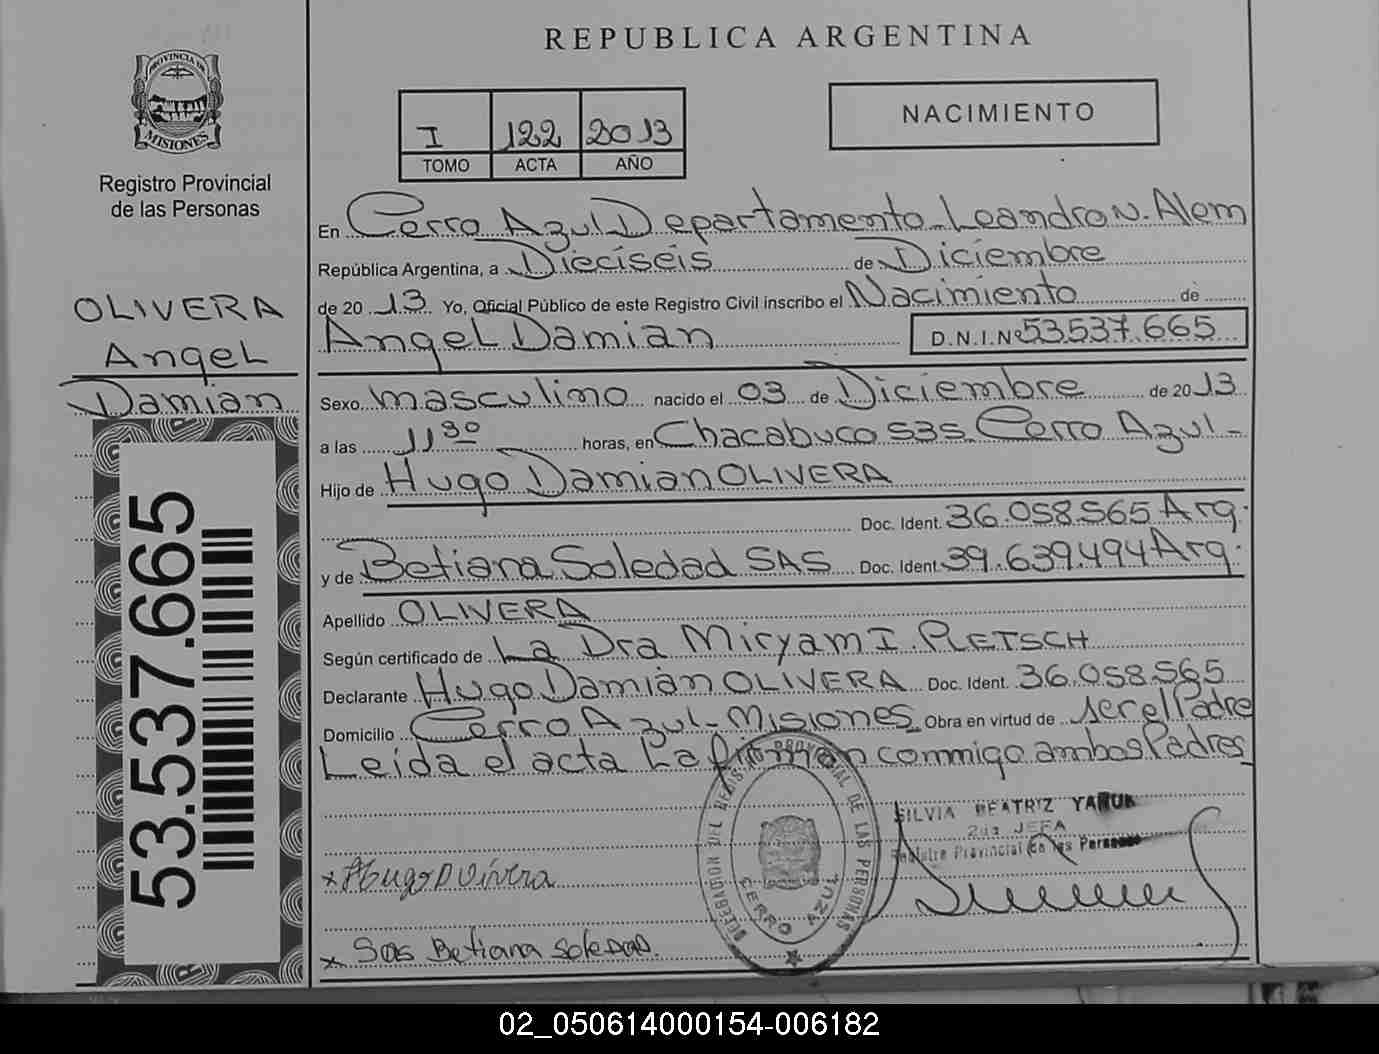 REPUBLICA ARGENTINA
PROVINCIA DE
MISIONES
Registro Provincial
de las Personas
I 122 2013
TOMO ACTA AÑO
NACIMIENTO
OLIVERA
Angel
Damian
53.537.665
En Cerro Azul Departamento Leandro N. Alem
República Argentina, a Dieciseis de Diciembre
de 20 13 Yo, Oficial Público de este Registro Civil inscribo el Nacimiento de
Angel Damian D.N.I. Nº 53537.665
Sexo masculino nacido el 03 de Diciembre de 20 13
a las 11 30 horas, en Chacabuco 535 Cerro Azul-
Hijo de Hugo Damian OLIVERA
Doc. Ident. 36.058.565 Arg.
y de Betiana Soledad SAS Doc. Ident. 39.639.494 Arg.
Apellido OLIVERA
Según certificado de La Dra Miryam I. PLETSCH
Declarante Hugo Damian OLIVERA Doc. Ident. 36.058.565
Domicilio Cerro Azul-Misiones Obra en virtud de ser el Padre
Leida el acta La firman commigo ambos Padres
DELEGACION DEL REGISTRO PROVINCIAL DE LAS PERSONAS
CERRO AZUL
SILVIA BEATRIZ
2da JEFA
Registro Provincial de las Personas
x Hugo D Olivera
x Sas Betiana Soledad.
02_050614000154-006182